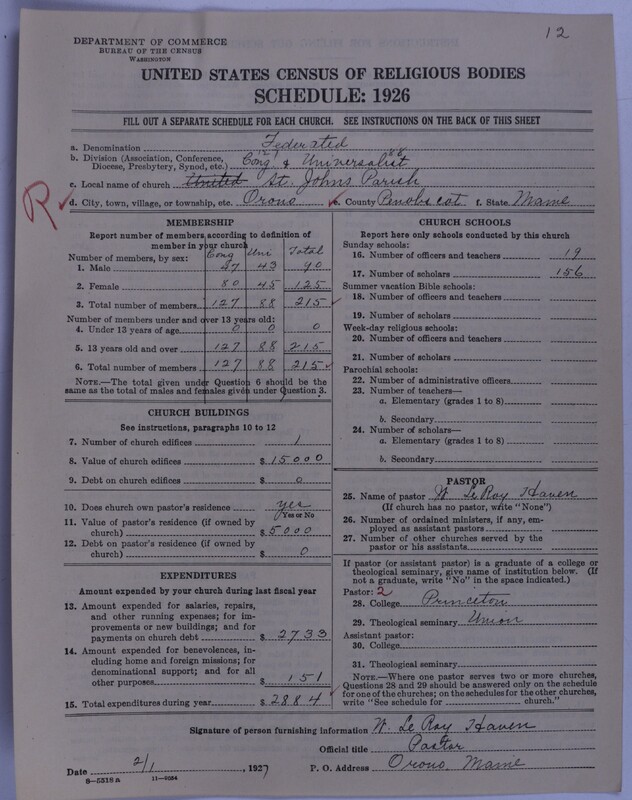 12
DEPARTMENT OF COMMERCE
BUREAU OF THE CENSUS
WASHINGTON
UNITED STATES CENSUS OF RELIGIOUS BODIES
SCHEDULE: 1926
FILL OUT A SEPARATE SCHEDULE FOR EACH CHURCH. SEE INSTRUCTIONS ON THE BACK OF THIS SHEET
a. Denomination Federated
b. Division (Association, Conference, Diocese, Presbytery, Synod, etc.) Cong'l & Universalist
c. Local name of church United St. Johns Parish
R
d. City, town, village, or township, etc. Orono e. County Penobscot f. State Maine
MEMBERSHIP
Report number of members according to definition of
member in your church
Number of members, by sex: Cong Uni Total
1. Male 47 43 90
2. Female 80 45 125
3. Total number of members 127 88 215
Number of members under and over 13 years old:
4. Under 13 years of age 0 0 0
5. 13 years old and over 127 88 215
6. Total number of members 127 88 215
NOTE.—The total given under Question 6 should be the
same as the total of males and females given under Question 3.
CHURCH BUILDINGS
See instructions, paragraphs 10 to 12
7. Number of church edifices 1
8. Value of church edifices $ 15000
9. Debt on church edifices $ 0
10. Does church own pastor's residence yes
Yes or No
11. Value of pastor's residence (if owned by
church) $ 5000
12. Debt on pastor's residence (if owned by
church) $ 0
EXPENDITURES
Amount expended by your church during last fiscal year
13. Amount expended for salaries, repairs,
and other running expenses; for im-
provements or new buildings; and for
payments on church debt $ 2733
14. Amount expended for benevolences, in-
cluding home and foreign missions; for
denominational support; and for all
other purposes $ 151
15. Total expenditures during year $ 2884
CHURCH SCHOOLS
Report here only schools conducted by this church
Sunday schools:
16. Number of officers and teachers 19
17. Number of scholars 156
Summer vacation Bible schools:
18. Number of officers and teachers
19. Number of scholars
Week-day religious schools:
20. Number of officers and teachers
21. Number of scholars
Parochial schools:
22. Number of administrative officers
23. Number of teachers—
a. Elementary (grades 1 to 8)
b. Secondary
24. Number of scholars—
a. Elementary (grades 1 to 8)
b. Secondary
PASTOR
25. Name of pastor W. Le Roy Haven
(If church has no pastor, write "None")
26. Number of ordained ministers, if any, em-
ployed as assistant pastors
27. Number of other churches served by the
pastor or his assistants
If pastor (or assistant pastor) is a graduate of a college or
theological seminary, give name of institution below. (If
not a graduate, write "No" in the space indicated.)
Pastor: 2
28. College Princeton
29. Theological seminary Union
Assistant pastor:
30. College
31. Theological seminary
NOTE.—Where one pastor serves two or more churches,
Questions 28 and 29 should be answered only on the schedule
for one of the churches; on the schedules for the other churches,
write "See schedule for church."
Signature of person furnishing information W. Le Roy Haven
Official title Pastor
Date 2/1, 1927 P. O. Address Orono, Maine
8—5518 A 11—9264